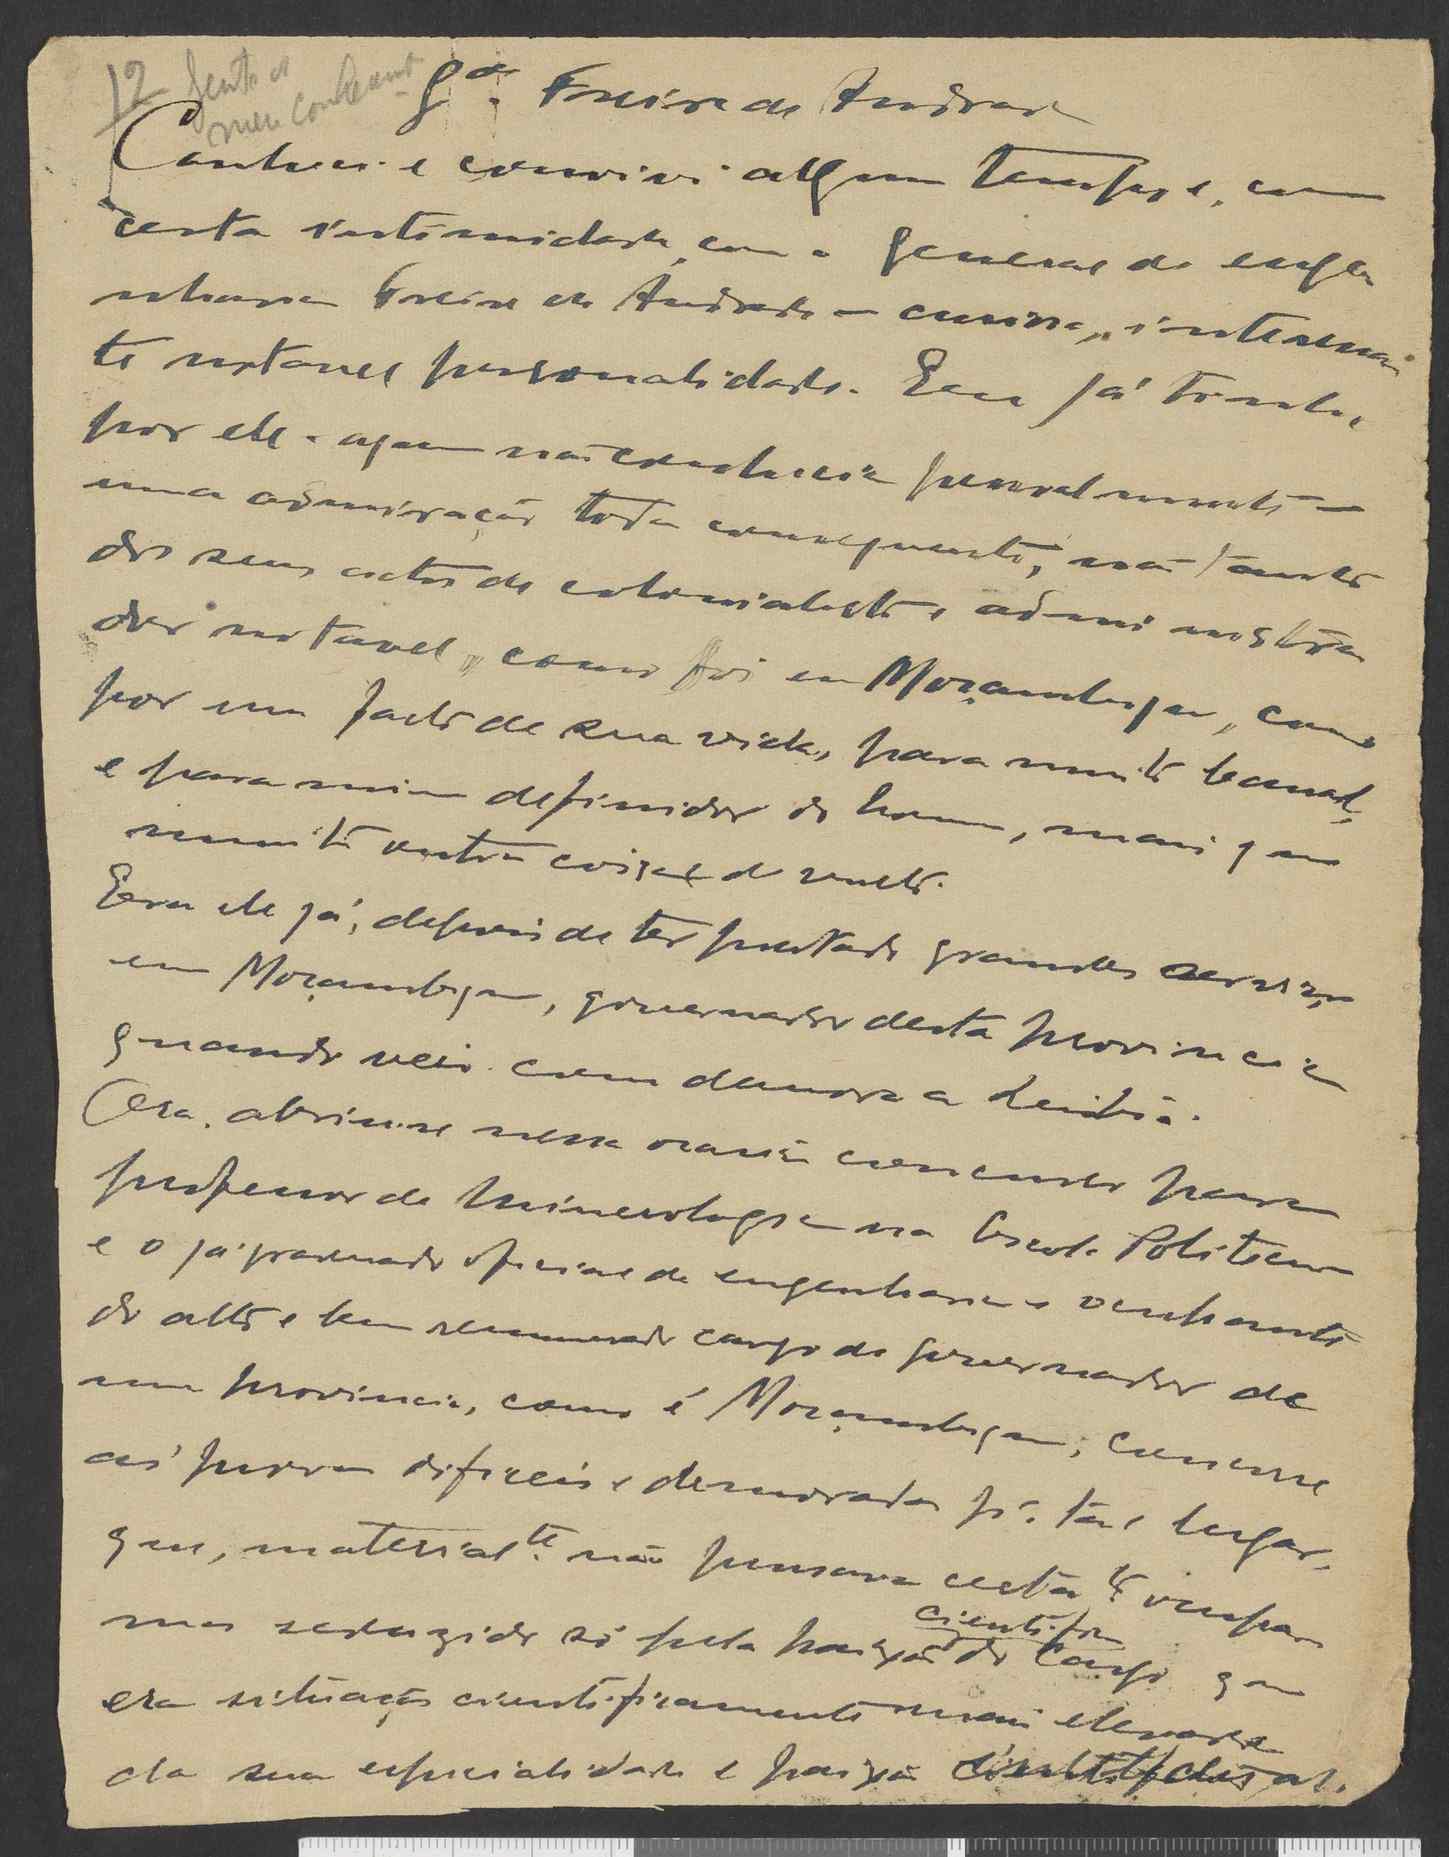 12 Gente do
meu conhecim.to
G.al Freire de Andrade
Conheci e convivi algum tempo e, com
certa intimidade, com o general de enge
nharia Freire de Andrade – curiosa, interessan
te notavel personalidade. Eeu já tinha
por ele – a quem não conhecia pessoalmente –
uma admiração toda consequente, não tanto
dos seus actos de colonialista e administra
dor notavel, como foi em Moçambique, como
por um facto de sua vida, para muito banal,
e para mim definidor do homem, mais que
muita outra coisa de vulto.
Era ele já, depois de ter prestado grandes serviços
em Moçambique, governador desta provincia
quando veio com demora a Lisboa.
Ora, abriu-se nessa ocasião concurso para
professor de Mineralogia na Escola Politecn
e o já graduado oficial de engenharia e ocupante
do alto e bem remunerado cargo de governador de
uma provincia, como é Moçambique, concorre
ás provas dificeis e demoradas p.ª tal lugar,
que, material.te não pensava certa.te ocupar
mas seduzido só pela paixão do cargo que
cientifica
era situação cientificamente mais elevada
da sua especialidade e paixão